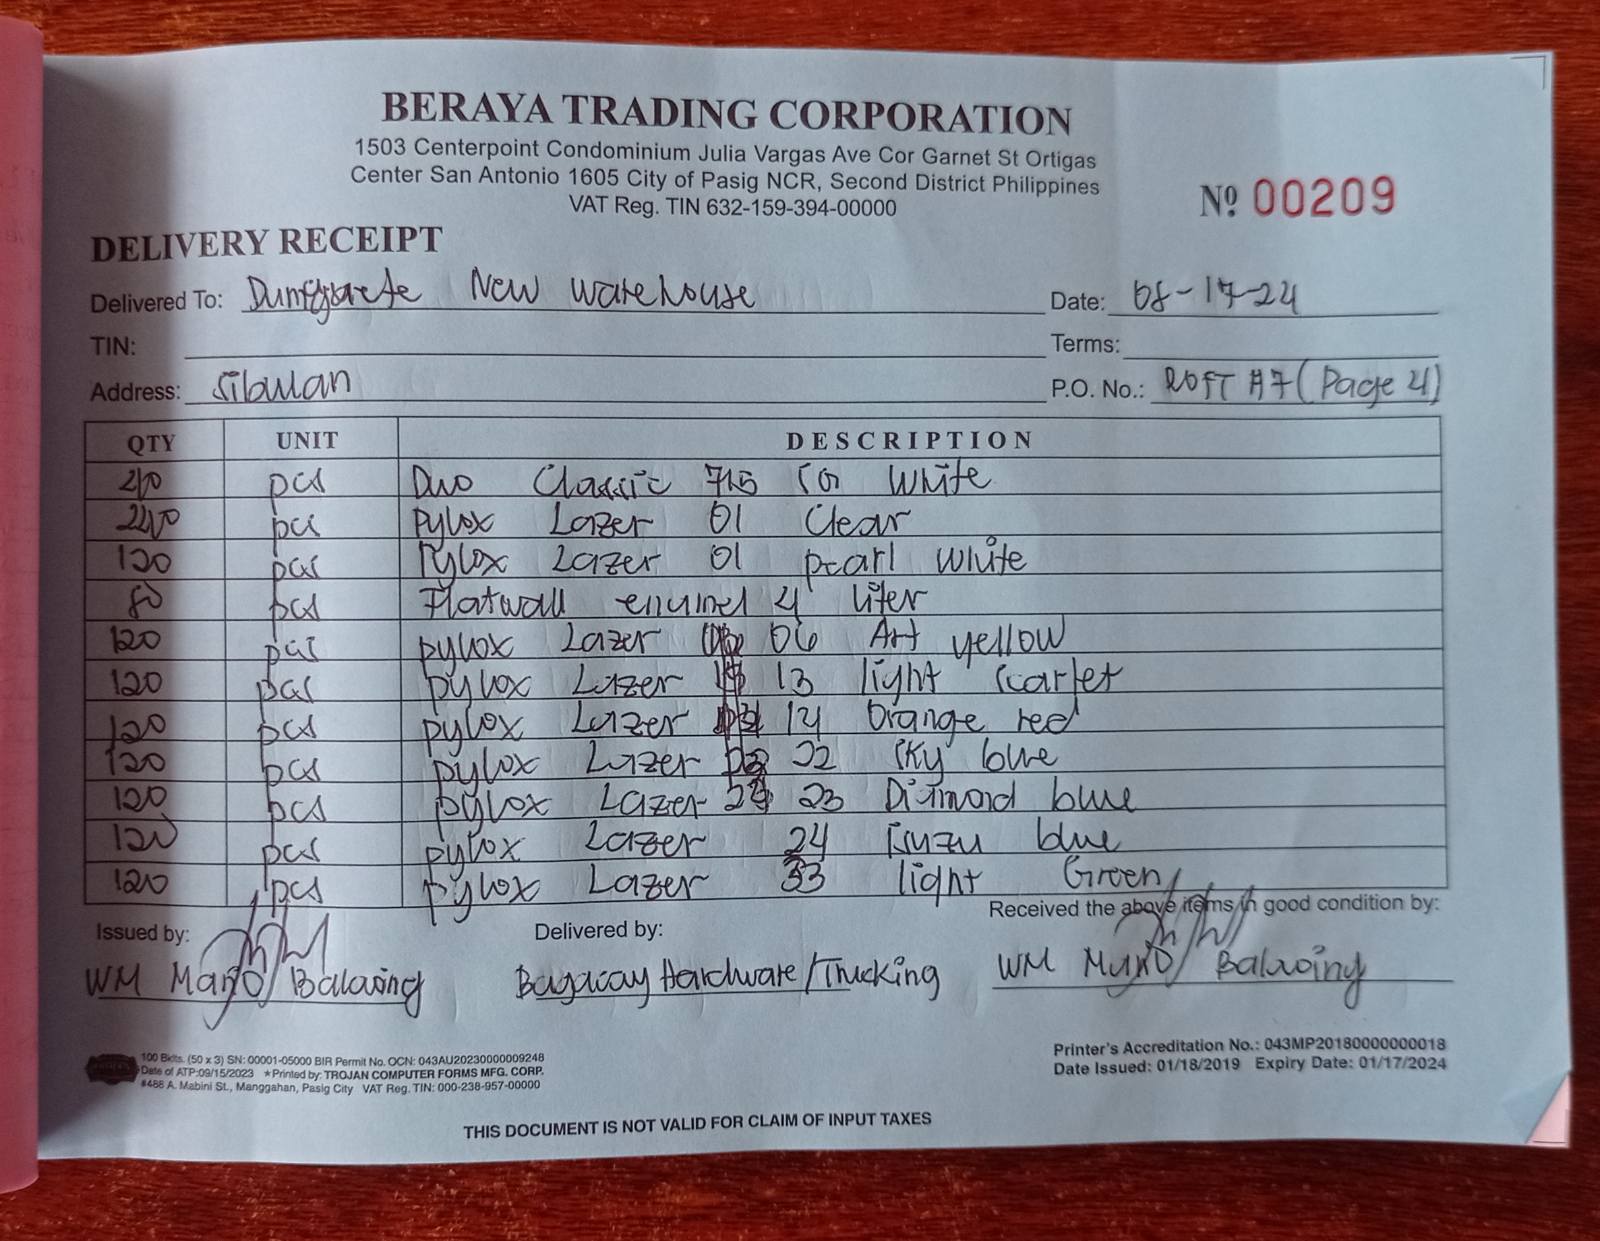 BERAYA TRADING CORPORATION
1503 Centerpoint Condominium Julia Vargas Ave Cor Garnet St Ortigas
Center San Antonio 1605 City of Pasig NCR, Second District Philippines
VAT Reg. TIN 632-159-394-00000
Nº 00209
DELIVERY RECEIPT
Delivered To: New warehouse Date: 08-17-24
TIN: Terms:
Address: Sibulan P.O. No.: #7 (Page 4)
QTY UNIT DESCRIPTION
pcs Duo Classic White
240 pcs pylox Lazer 01 Clear
120 pcs Pylox Lazer 01 pearl white
80 pcs Flatwall 4 liter
120 pcs pylox Lazer 06 Art yellow
120 pcs pylox Lazer 13 light scarlet
120 pcs pylox Lazer 14 Orange red
120 pcs pylox Lazer 22 sky blue
120 pcs pylox Lazer 23 blue
120 pcs pylox Lazer 24 blue
120 pcs pylox Lazer 33 light Green
Issued by: Delivered by: Received the above items in good condition by:
WM Balaoing Bagacay Hardware/Trucking WM Balaoing
100 Bklts. (50 x 3) SN: 00001-05000 BIR Permit No. OCN: 043AU20230000009248
Date of ATP:09/15/2023 ★Printed by: TROJAN COMPUTER FORMS MFG. CORP.
#488 A. Mabini St., Manggahan, Pasig City VAT Reg. TIN: 000-238-957-00000
Printer's Accreditation No.: 043MP20180000000018
Date Issued: 01/18/2019 Expiry Date: 01/17/2024
THIS DOCUMENT IS NOT VALID FOR CLAIM OF INPUT TAXES